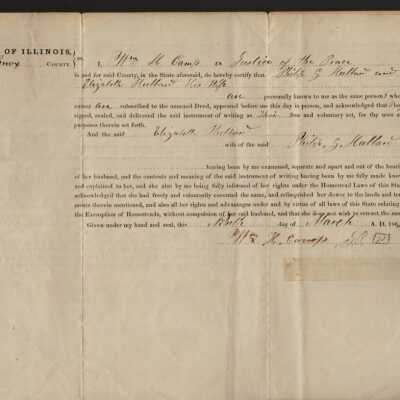 OF ILLINOIS,
nox COUNTY. I, Wm H. Camp a Justice of the Peace
in and for said County, in the State aforesaid, do hereby certify that Philip G Hulland and
Elizabeth Hulland His Wife
are personally known to me as the same person? whos
are subscribed to the annexed Deed, appeared before me this day in person, and acknowledged that
signed, sealed, and delivered the said instrument of writing as free and voluntary act, for thy uses a
purposes therein set forth.
And the said Elizabeth Hulland
wife of the said Philip G Hulland
having been by me examined, separate and apart and out of the hearin
of her husband, and the contents and meaning of the said instrument of writing having been by me fully made know
and explained to her, and she also by me being fully informed of her rights under the Homestead Laws of this Stat
acknowledged that she had freely and voluntarily executed the same, and relinquished her dower to the lands and ten
ments therein mentioned, and also all her rights and advantages under and by virtue of all laws of this State relating
the Exemption of Homesteads, without compulsion of her said husband, and that she does not wish to retract the sam
Given under my hand and seal, this day of March A. D. 186
Wm H. Camp J.P.